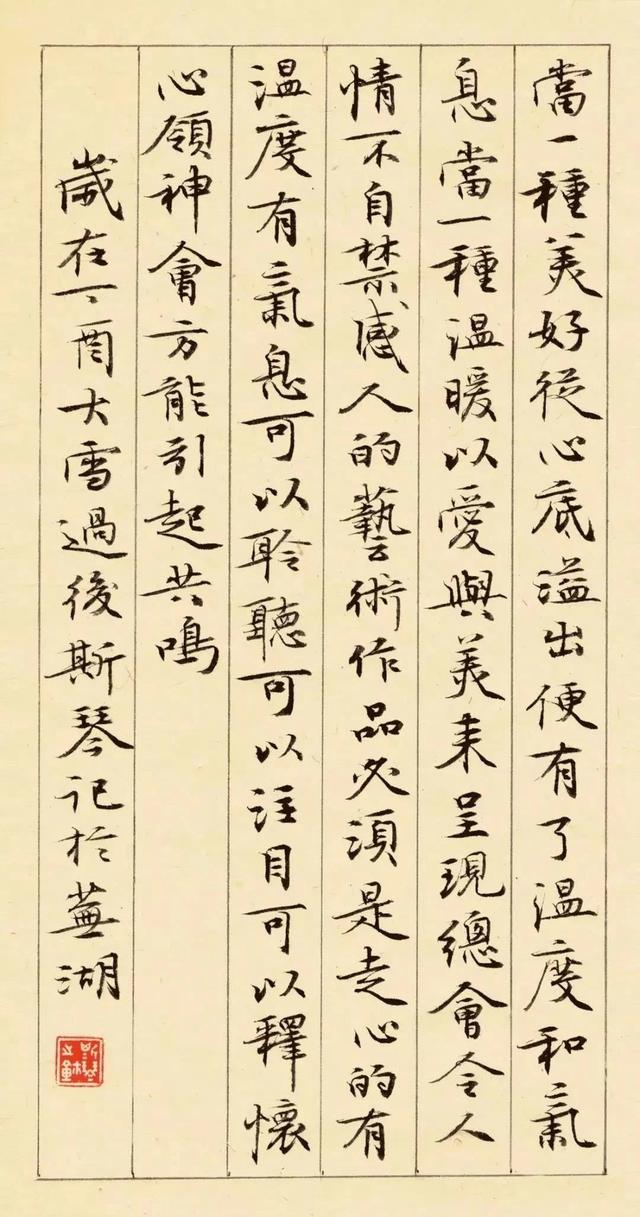 當一種美好從心底溢出便有了溫度和氣
息當一種溫暖以愛與美来呈現總會令人
情不自禁感人的藝術作品必須是走心的有
溫度有氣息可以聆聽可以注目可以釋懷
心領神會方能引起共鳴
歲在丁酉大雪過後斯琴記於蕪湖